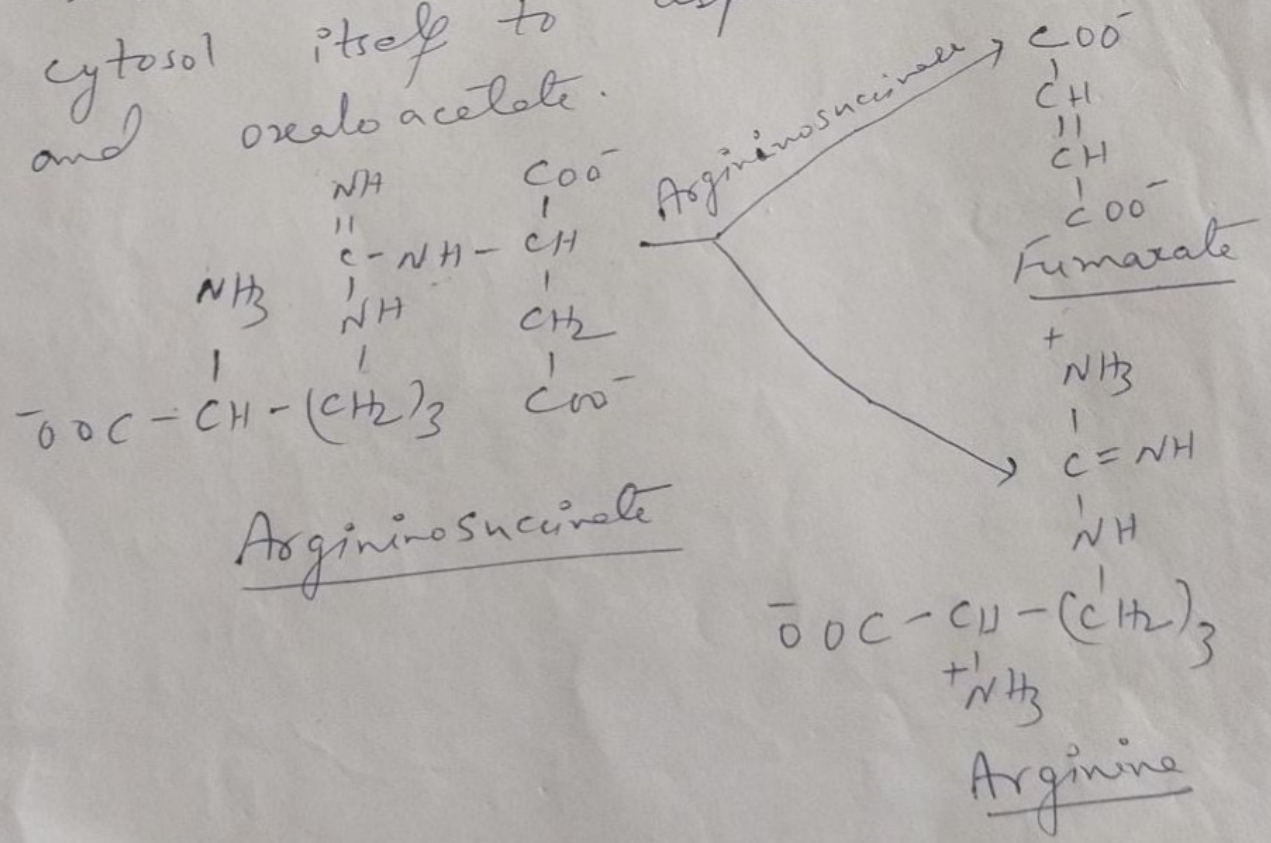 cytosol itself to
and oxaloacetate.
NH
||
C-NH-
NH3
NH
-OOC-CH-(CH2)3
COO-
CH
CH2
COO-
Argininosuccinate
Argininosuccinase
COO-
CH
||
CH
COO-
Fumarate
+
NH3
C=NH
NH
-OOC-CH-(CH2)3
+NH3
Arginine